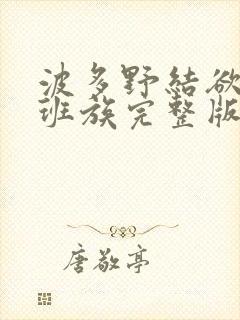 波多野結欲
班族完整版
唐敬亭